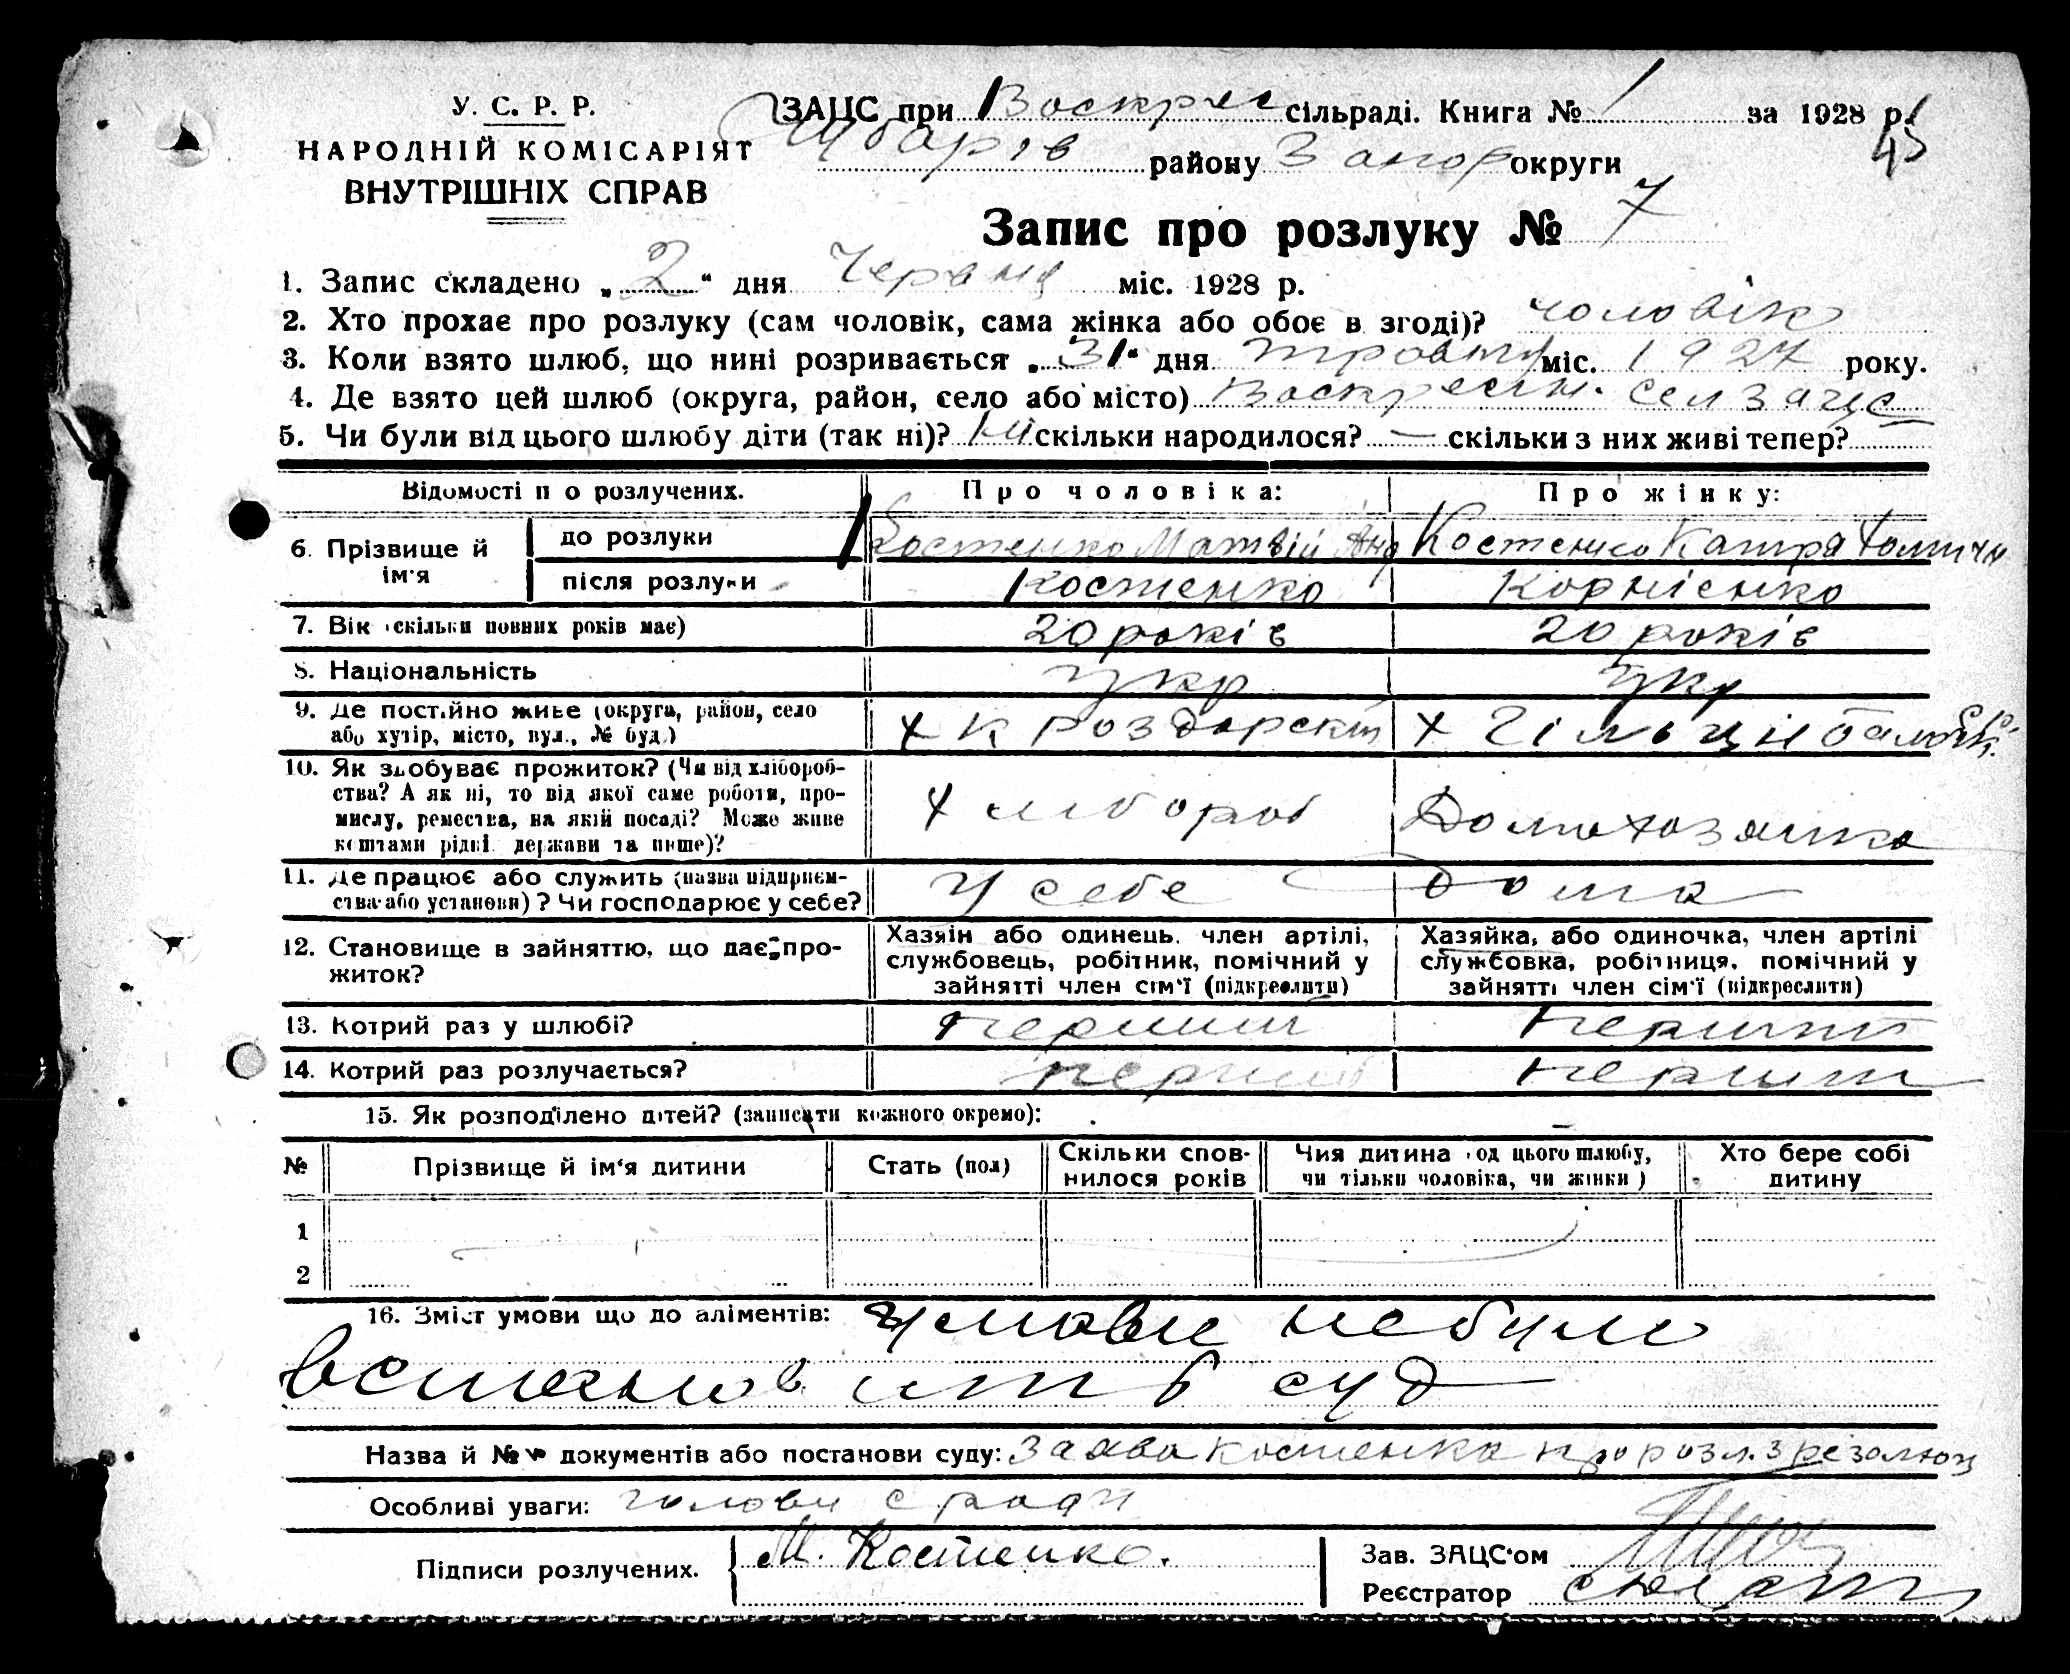 У. С. Р. Р.
НАРОДНІЙ КОМІСАРІЯТ
ВНУТРІШНІХ СПРАВ
ЗАЦС при Воскрес сільраді. Книга № 1 за 1928 р.
45
Чубарів району Запор округи
Запис про розлуку № 7
1. Запис складено „ 2 " дня Червня міс. 1928 р.
2. Хто прохає про розлуку (сам чоловік, сама жінка або обоє в згоді)? чоловік
3. Коли взято шлюб, що нині розривається „ 31 " дня травня міс. 1927 року.
4. Де взято цей шлюб (округа, район, село або місто) Воскресен. сел ЗАЦС
5. Чи були від цього шлюбу діти (так ні)? Ні скільки народилося? — скільки з них живі тепер?
Відомості п о розлучених. Про чоловіка: Про жінку:
6. Прізвище й ім'я до розлуки Костенко Матвій Анд Костенко Катря
після розлуки Костенко Корнієнко
7. Вік скільки повних років має) 20 років 20 років
8. Національність укр укр
9. Де постійно живе (округа, район, село
або хутір, місто, вул., № буд.)
10. Як здобуває прожиток? (Чи від хлібороб-
ства? А як ні, то від якої саме роботи, про-
мислу, ремества, на якій посаді? Може живе
коштами рідні держави та инше)?
хлібороб Домохозяйка
11. Де працює або служить (назва підприєм-
ства або установи)? Чи господарює у себе?
у себе дома
12. Становище в зайняттю, що дає про-
житок?
Хазяїн або одинець, член артілі,
службовець, робітник, помічний у
зайнятті член сім'ї (підкреслити)
Хазяйка, або одиночка, член артілі
службовка, робітниця, помічний у
зайнятті член сім'ї (підкреслити)
13. Котрий раз у шлюбі? перший перший
14. Котрий раз розлучається? перший перший
15. Як розподілено дітей? (записати кожного окремо):
№ Прізвище й ім'я дитини Стать (пол) Скільки спов-
нилося років Чия дитина од цього шлюбу,
чи тільки чоловіка, чи жінки) Хто бере собі
дитину
1
2
16. Зміст умови що до аліментів: умови небуло
встановить суд
Назва й №№ документів або постанови суду: Заява Костенка про розл. з резолюц
Особливі уваги: голови с ради
Підписи розлучених. М. Костенко.
Зав. ЗАЦС'ом
Реєстратор